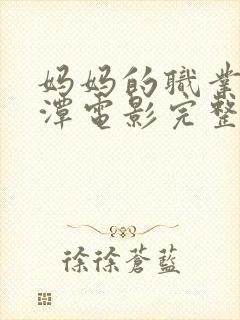 妈妈的職業
潭电影完整
徐徐蒼藍